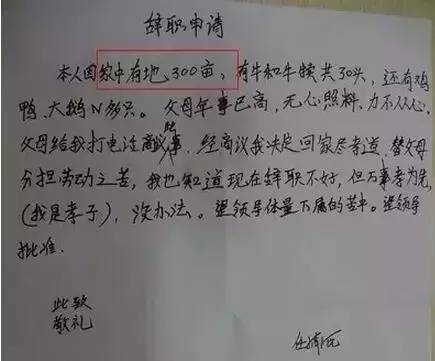 辞职申请
本人因家中有地300亩，有牛和牛犊共30头，还有鸡
鸭、大鹅N多只。父母年事已高，无心照料，力不从心，
父母给我打电话商议的事，经商议我决定回家尽孝道，替父母
分担劳动之苦，我也知道现在辞职不好，但万事孝为先，
(我是孝子)，没办法。望领导体量下属的苦中。望领导
批准。
此致
敬礼